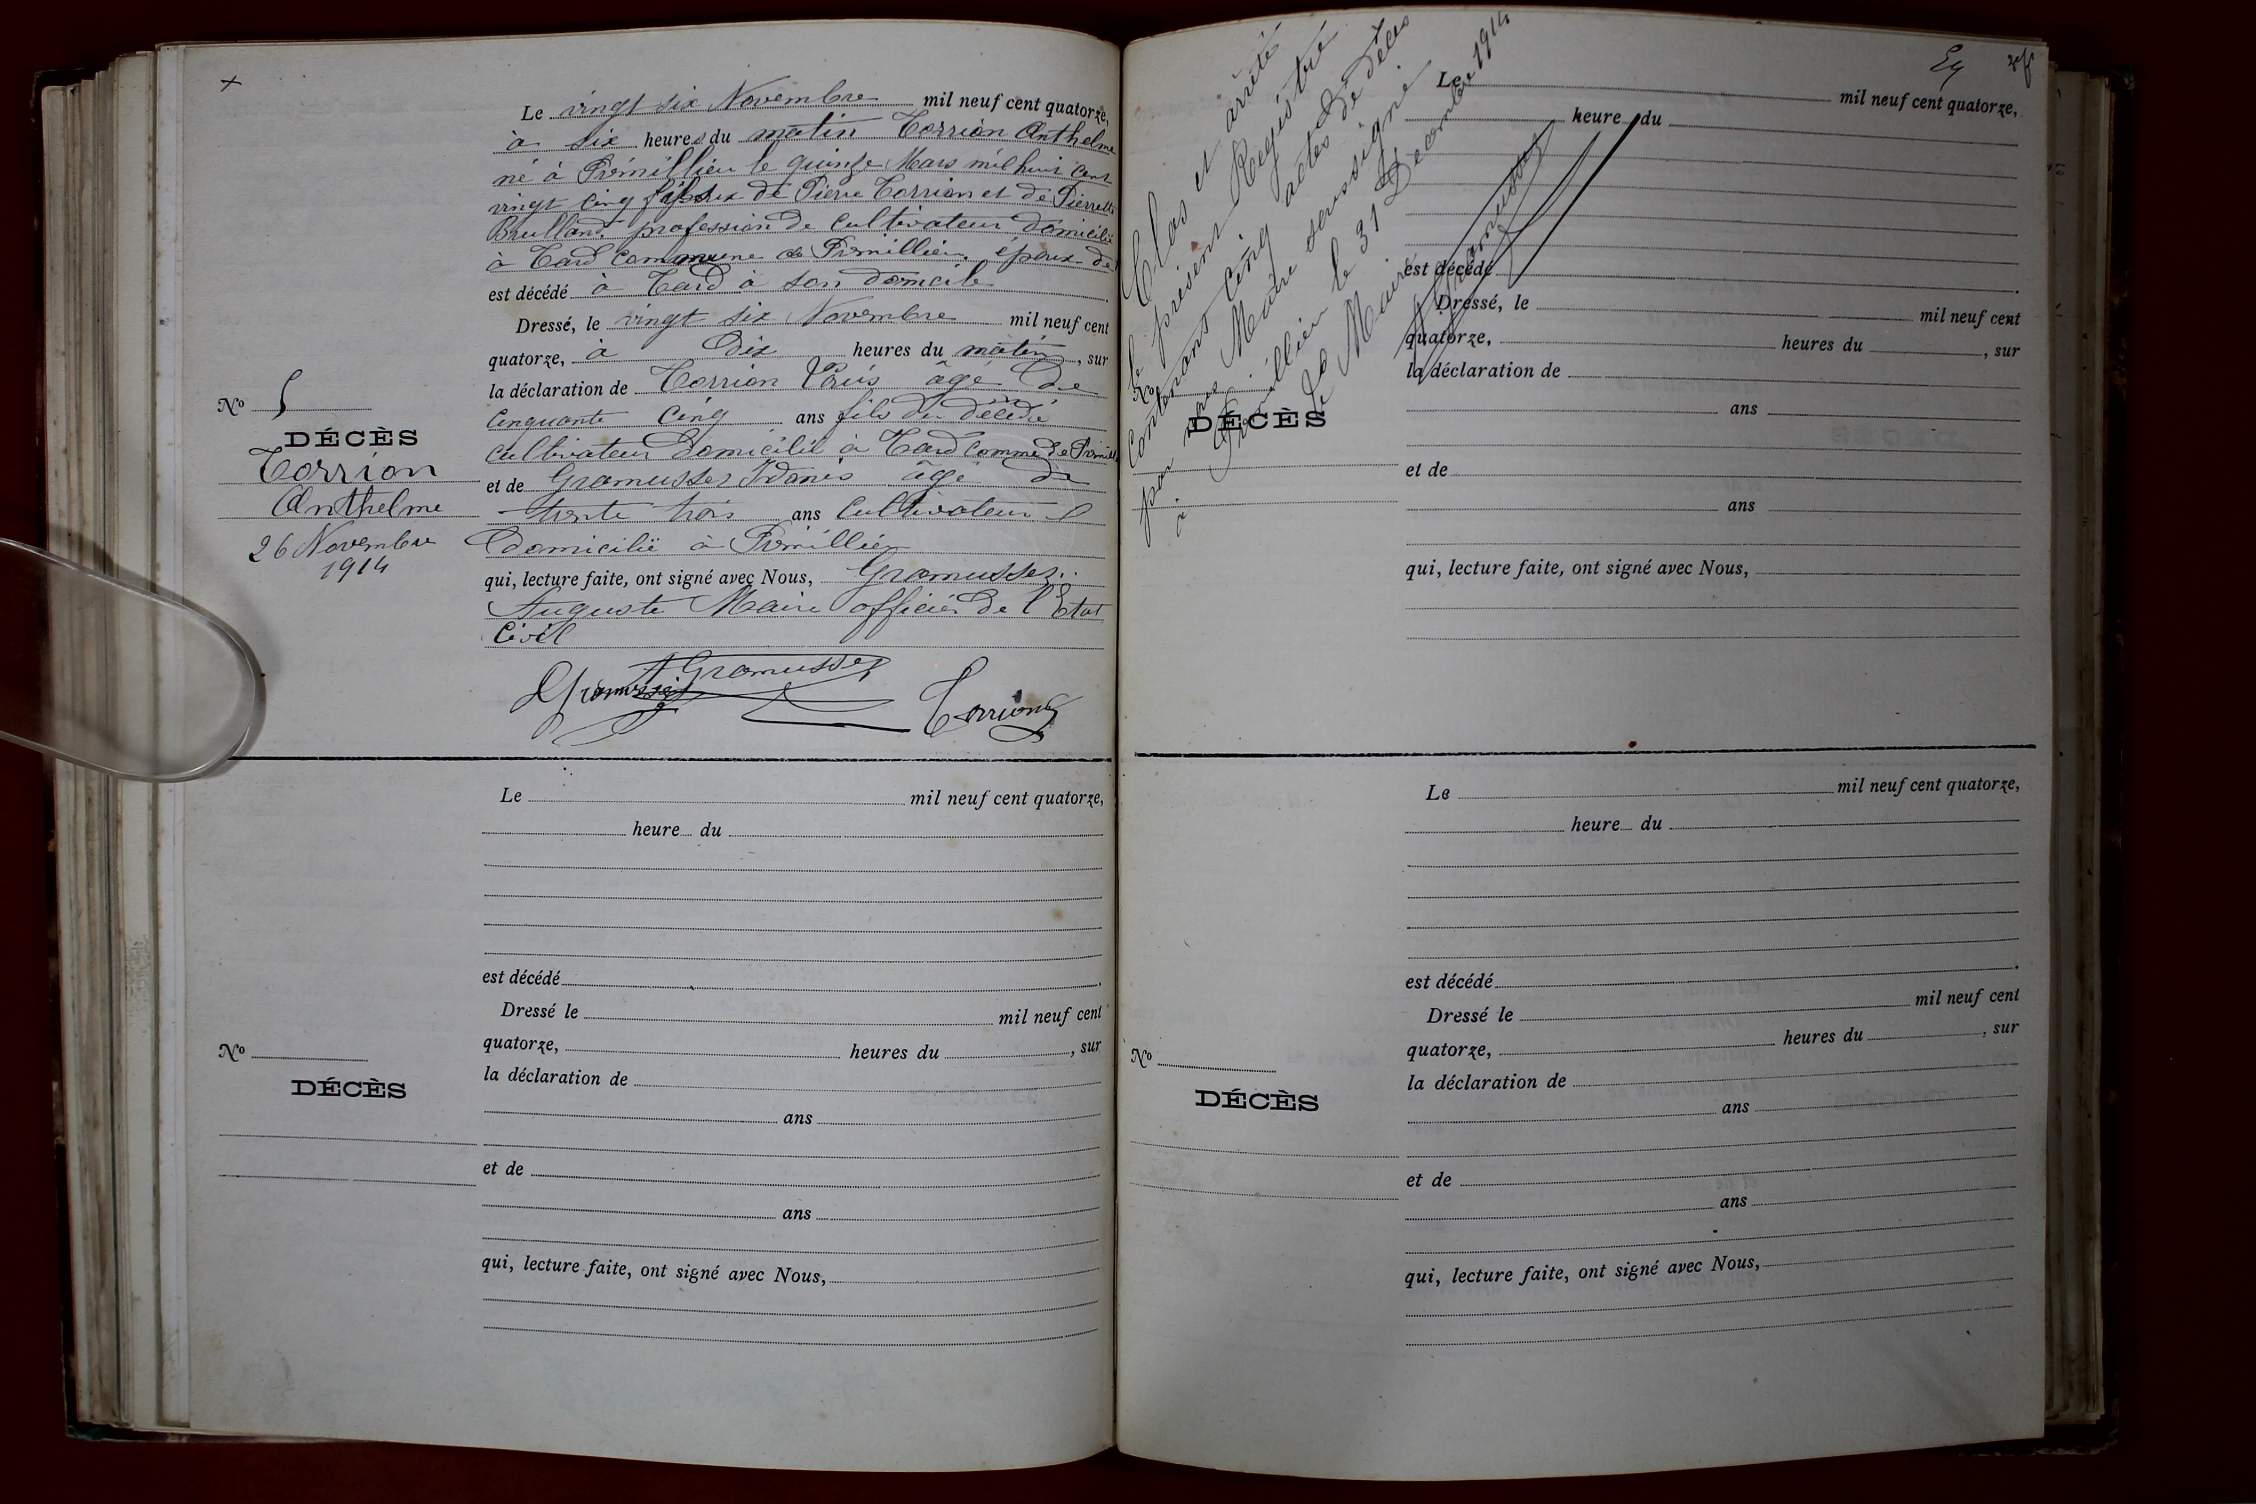 Le vingt six Novembre mil neuf cent quatorze,
à six heures du matin Torrion Anthelme
né à Prémillieu le quinze Mars mil huit cent
vingt cinq fils de Pierre Torrion et de Pierrette
Brulland profession de cultivateur domicilié
à Tard commune de Prémillieu, époux de
est décédé à Tard à son domicile
Dressé, le vingt six Novembre mil neuf cent
quatorze, à Dix heures du matin, sur
la déclaration de Torrion âgé de
cinquante cinq ans fils du décédé
cultivateur domicilié à Tard comme de
et de Gramusset âgé de
trente trois ans cultivateur
domicilié à Prémillieu
qui, lecture faite, ont signé avec Nous, Gramusset
Auguste Maire officier de l'Etat
Civil
Gramusset
A Gramusset
Torrion
No 5
DÉCÈS
Torrion
Anthelme
26 Novembre
1914
Le mil neuf cent quatorze,
heure du
est décédé
Dressé le mil neuf cent
quatorze, heures du , sur
la déclaration de
ans
et de
ans
qui, lecture faite, ont signé avec Nous,
No
DÉCÈS
Clos et arrêté
le présent Registre
contenant cinq actes de décès
par nous Maire soussigné
à Prémillieu le 31 Décembre 1914
Le Maire
Gramusset
Le mil neuf cent quatorze,
heure du
est décédé
Dressé, le mil neuf cent
quatorze, heures du , sur
la déclaration de
ans
et de
ans
qui, lecture faite, ont signé avec Nous,
No
DÉCÈS
Le mil neuf cent quatorze,
heure du
est décédé
Dressé le mil neuf cent
quatorze, heures du , sur
la déclaration de
ans
et de
ans
qui, lecture faite, ont signé avec Nous,
No
DÉCÈS